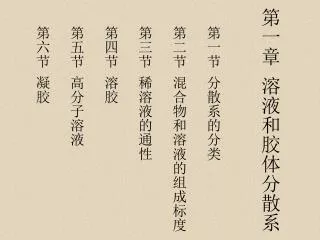 第一章 溶液和胶体分散系
第一节 分散系的分类
第二节 混合物和溶液的组成标度
第三节 稀溶液的通性
第四节 溶胶
第五节 高分子溶液
第六节 凝胶